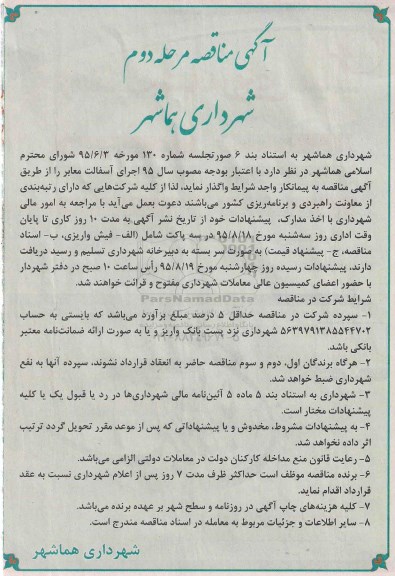 آگهی مناقصه مرحله دوم
شهرداری هماشهر
شهرداری هماشهر به استناد بند ۶ صورتجلسه شماره ۱۳۰ مورخه ۹۵/۶/۳ شورای محترم
اسلامی هماشهر در نظر دارد با اعتبار بودجه مصوب سال ۹۵ اجرای آسفالت معابر را از طریق
آگهی مناقصه به پیمانکار واجد شرایط واگذار نماید، لذا از کلیه شرکت‌هایی که دارای رتبه‌بندی
از معاونت راهبردی و برنامه‌ریزی کشور می‌باشند دعوت بعمل می‌آید با مراجعه به امور مالی
شهرداری با اخذ مدارک، پیشنهادات خود از تاریخ نشر آگهی به مدت ۱۰ روز کاری تا پایان
وقت اداری روز سه‌شنبه مورخ ۹۵/۸/۱۸ در سه پاکت شامل (الف- فیش واریزی، ب- اسناد
مناقصه، ج- پیشنهاد قیمت) به صورت سر بسته به دبیرخانه شهرداری تسلیم و رسید دریافت
دارند، پیشنهادات رسیده روز چهارشنبه مورخ ۹۵/۸/۱۹ رأس ساعت ۱۰ صبح در دفتر شهردار
با حضور اعضای کمیسیون عالی معاملات شهرداری مفتوح و قرائت خواهند شد.
ParsNamadData
شرایط شرکت در مناقصه
۱- سپرده شرکت در مناقصه حداقل ۵ درصد مبلغ برآورد می‌باشد که بایستی به حساب
۵۶۳۹۷۹۱۳۸۵۵۴۴۷۰۲ شهرداری نزد پست بانک واریز و یا به صورت ارائه ضمانت‌نامه معتبر
بانکی باشد.
۲- هرگاه برندگان اول، دوم و سوم مناقصه حاضر به انعقاد قرارداد نشوند، سپرده آنها به نفع
شهرداری ضبط خواهد شد.
۳- شهرداری به استناد بند ۵ ماده ۵ آئین‌نامه مالی شهرداری‌ها در رد یا قبول یک یا کلیه
پیشنهادات مختار است.
۴- به پیشنهادات مشروط، مخدوش و یا پیشنهاداتی که پس از موعد مقرر تحویل گردد ترتیب
اثر داده نخواهد شد.
۵- رعایت قانون منع مداخله کارکنان دولت در معاملات دولتی الزامی می‌باشد.
۶- برنده مناقصه موظف است حداکثر ظرف مدت ۷ روز پس از اعلام شهرداری نسبت به عقد
قرارداد اقدام نماید.
۷- کلیه هزینه‌های چاپ آگهی در روزنامه و سطح شهر بر عهده برنده می‌باشد.
۸- سایر اطلاعات و جزئیات مربوط به معامله در اسناد مناقصه مندرج است.
شهرداری هماشهر